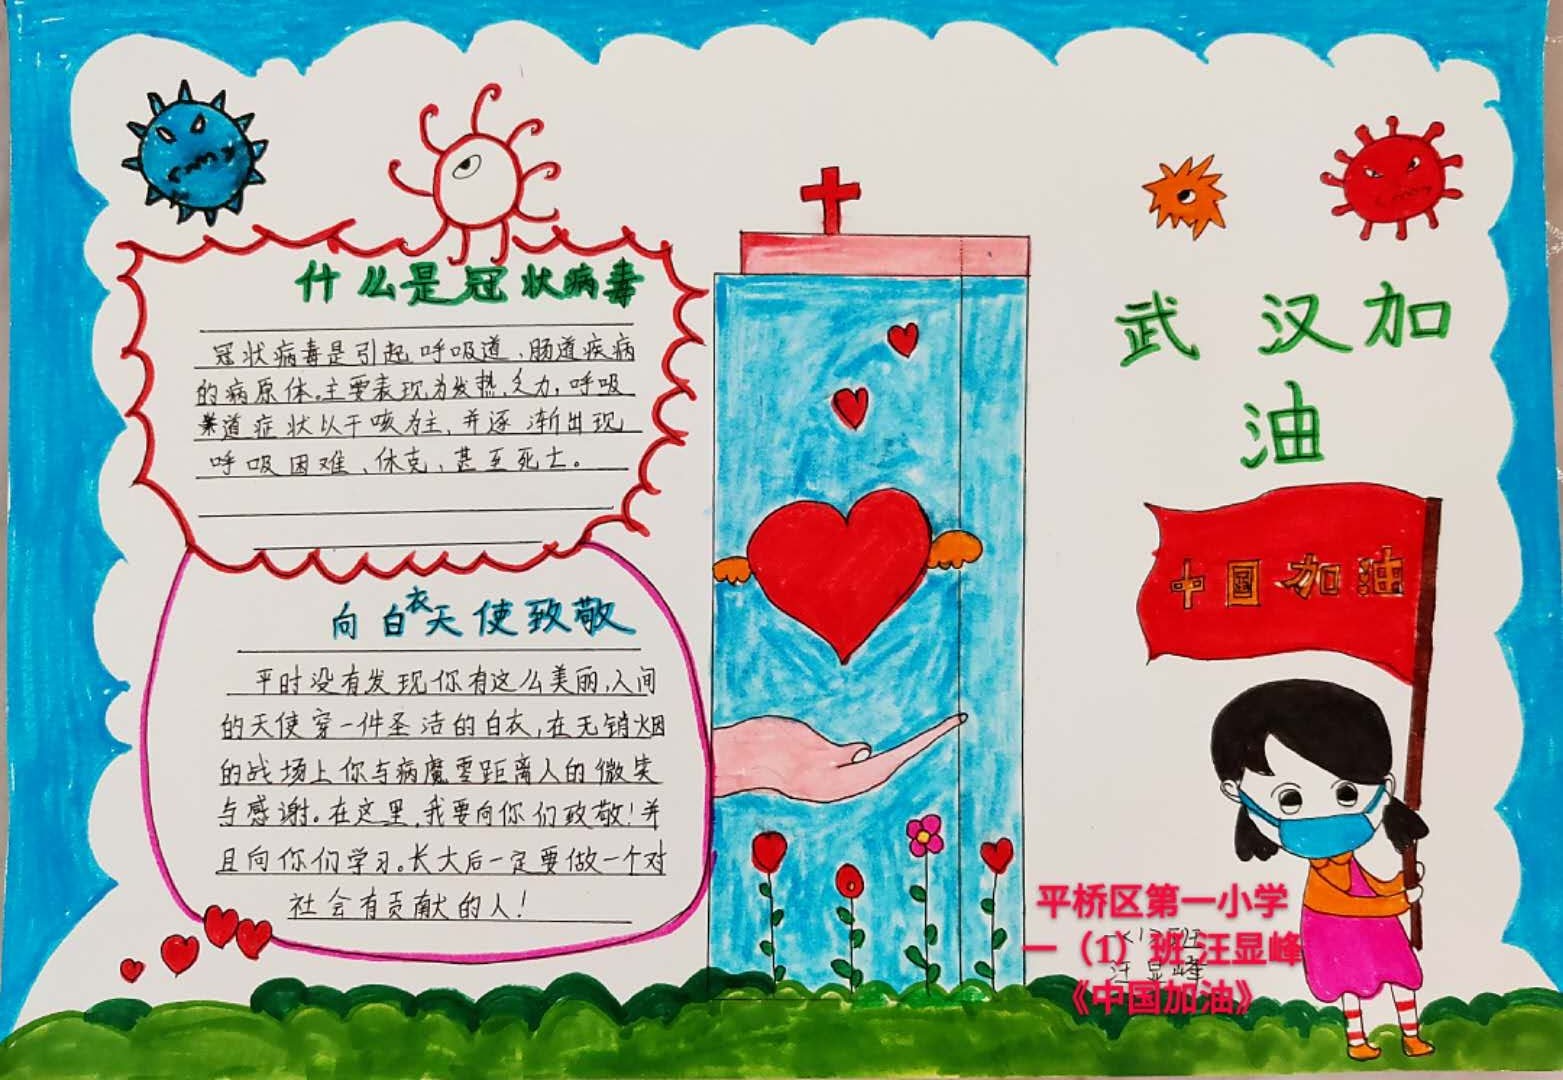 什么是冠状病毒
冠状病毒是引起呼吸道、肠道疾病
的病原体。主要表现为发热,乏力,呼吸
道症状以干咳为主,并逐渐出现
呼吸困难、休克、甚至死亡。
向白衣天使致敬
平时没有发现你有这么美丽,人间
的天使穿一件圣洁的白衣,在无销烟
的战场上你与病魔零距离人的微笑
与感谢。在这里,我要向你们致敬!并
且向你们学习。长大后一定要做一个对
社会有贡献的人!
武汉加
油
中国加油
平桥区第一小学
一（1）班 汪显峰
《中国加油》
一(1)班
汪显峰